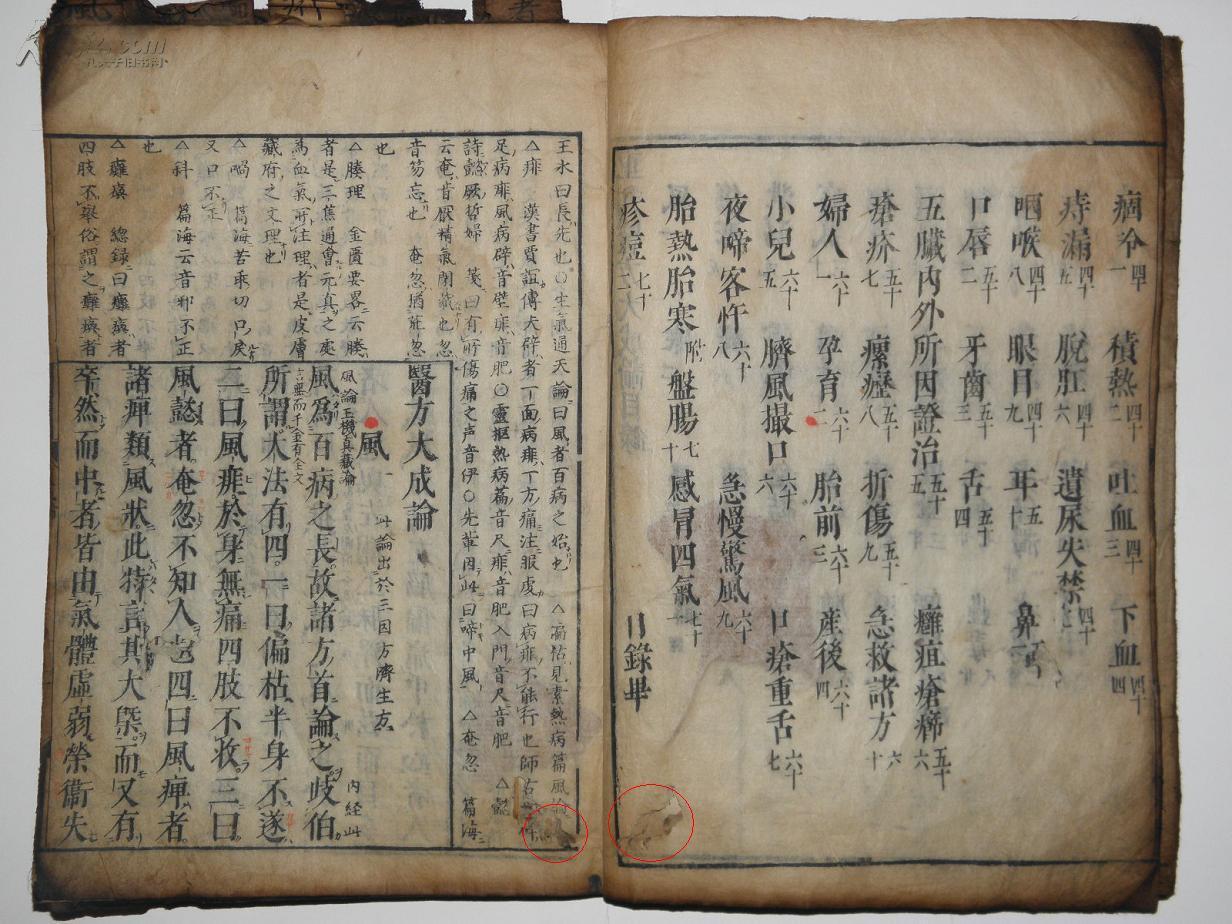 痼冷四十一 積熱四十二 吐血四十三 下血四十四
痔漏四十五 脫肛四十六 遺尿失禁四十七
咽喉四十八 眼目四十九 耳五十 鼻五十一
口唇五十二 牙齒五十三 舌五十四
五臟内外所因證治五十五 癰疽瘡癤五十六
瘡疥五十七 瘰癧五十八 折傷五十九 急救諸方六十
婦人六十一 孕育六十二 胎前六十三 產後六十四
小兒六十五 臍風撮口六十六 口瘡重舌六十七
夜啼客忤六十八 急慢驚風六十九
胎熱胎寒附 盤腸七十 感冒四氣七十一
疹痘七十二 目錄畢
王氷曰長先也〇生氣通天論曰風者百病之始也 △偏枯見素熱病篇風論
△痱 漢書賈誼傳夫辟者一面病痱一方痛注服虔曰病痱不能行也師古
足病痱風病辟音壁痱音肥〇靈樞熱病篇音尺痱音肥入門音尺音肥 △懿
詩懿厥哲婦 箋曰有所傷痛之声音伊〇先輩因此曰啼中風 △奄忽 篇海
云奄音厭精氣閉藏也忽
音笏忘也 奄忽猶茫忽
也
△腠理 金匱要畧云腠
者是三焦通會元真之處
爲血氣所注理者是皮膚
藏府之文理也
△喎 篇海若乖切口戾
又口不正
△斜 篇海云音邪不正
也
△癱瘓 總錄曰癱瘓者
四肢不舉俗謂之癱瘓者
醫方大成論
風 此論出於三因方濟生方
風論玉機真藏論
言無而千金有全文
風爲百病之長故諸方首論之岐伯 内經此
所謂大法有四一曰偏枯半身不遂
二曰風痱於身無痛四肢不收三曰
風懿者奄忽不知人也四曰風痺者
諸痺類風狀此特言其大槩而又有
卒然而中者皆由氣體虛弱榮衞失